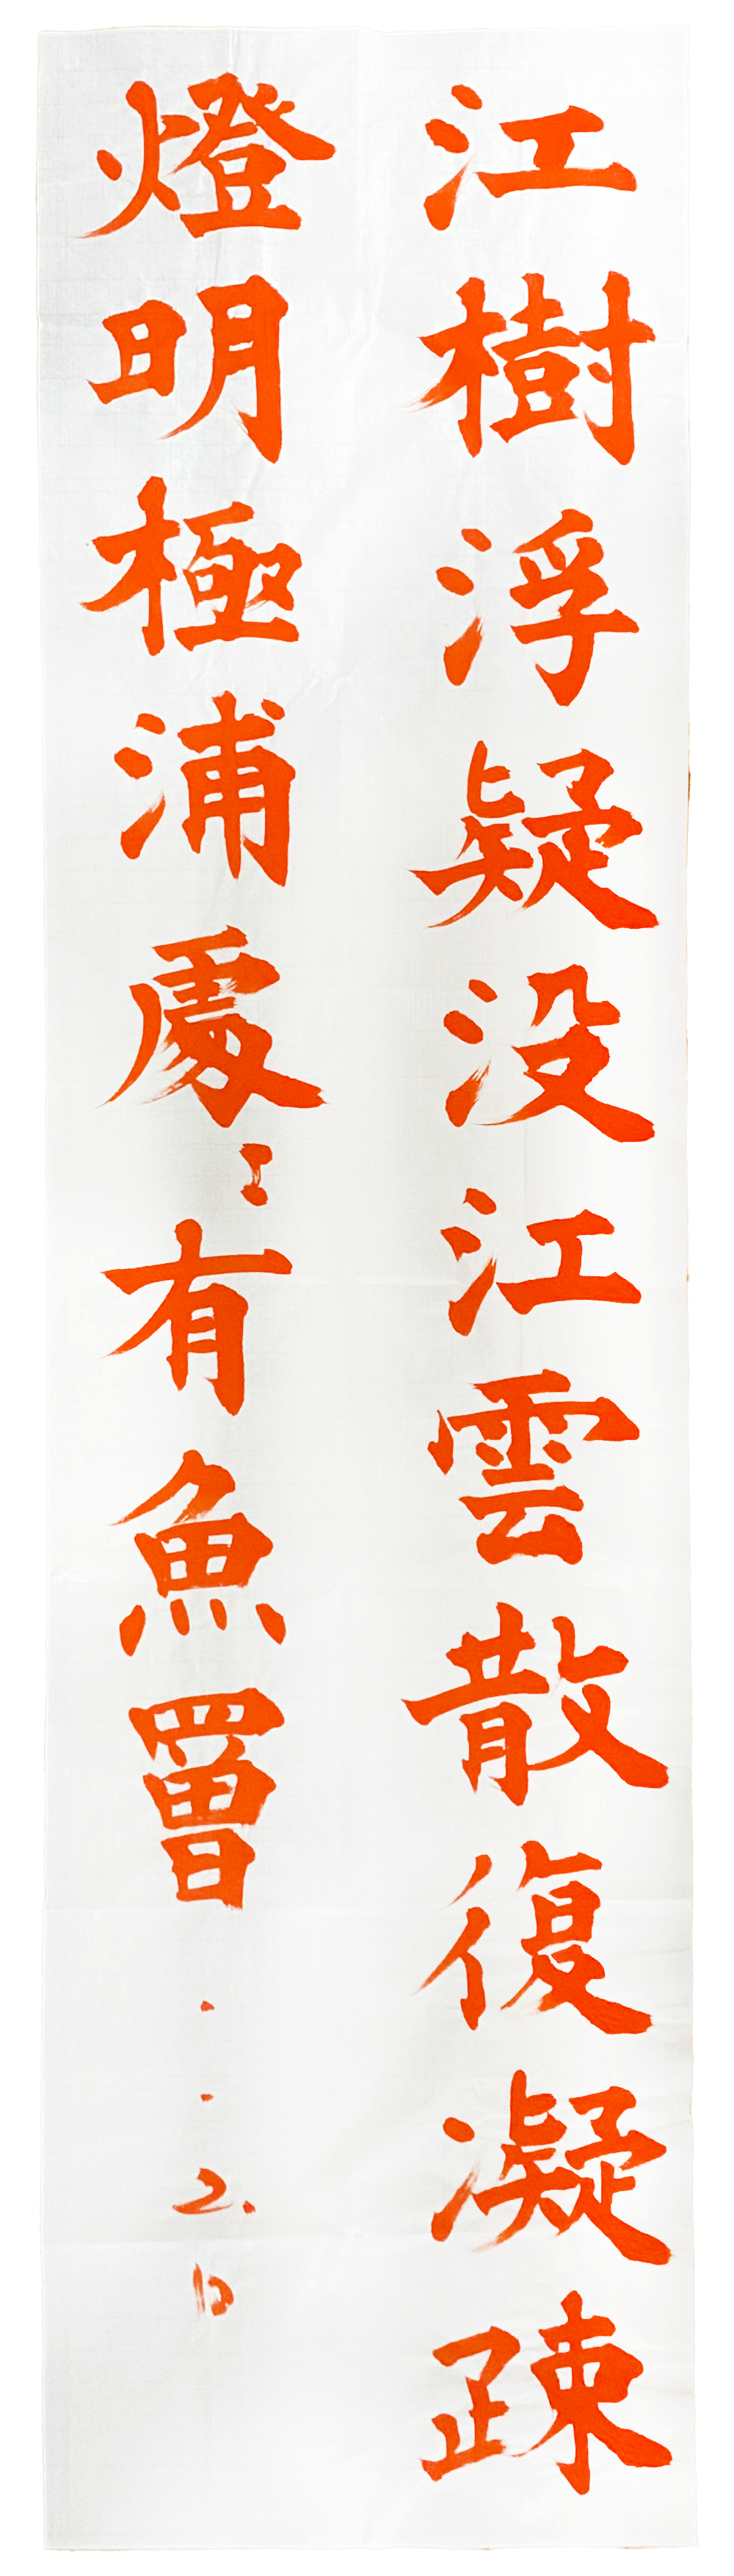 江樹浮疑没江雲散復凝疎
燈明極浦處〻有魚罾